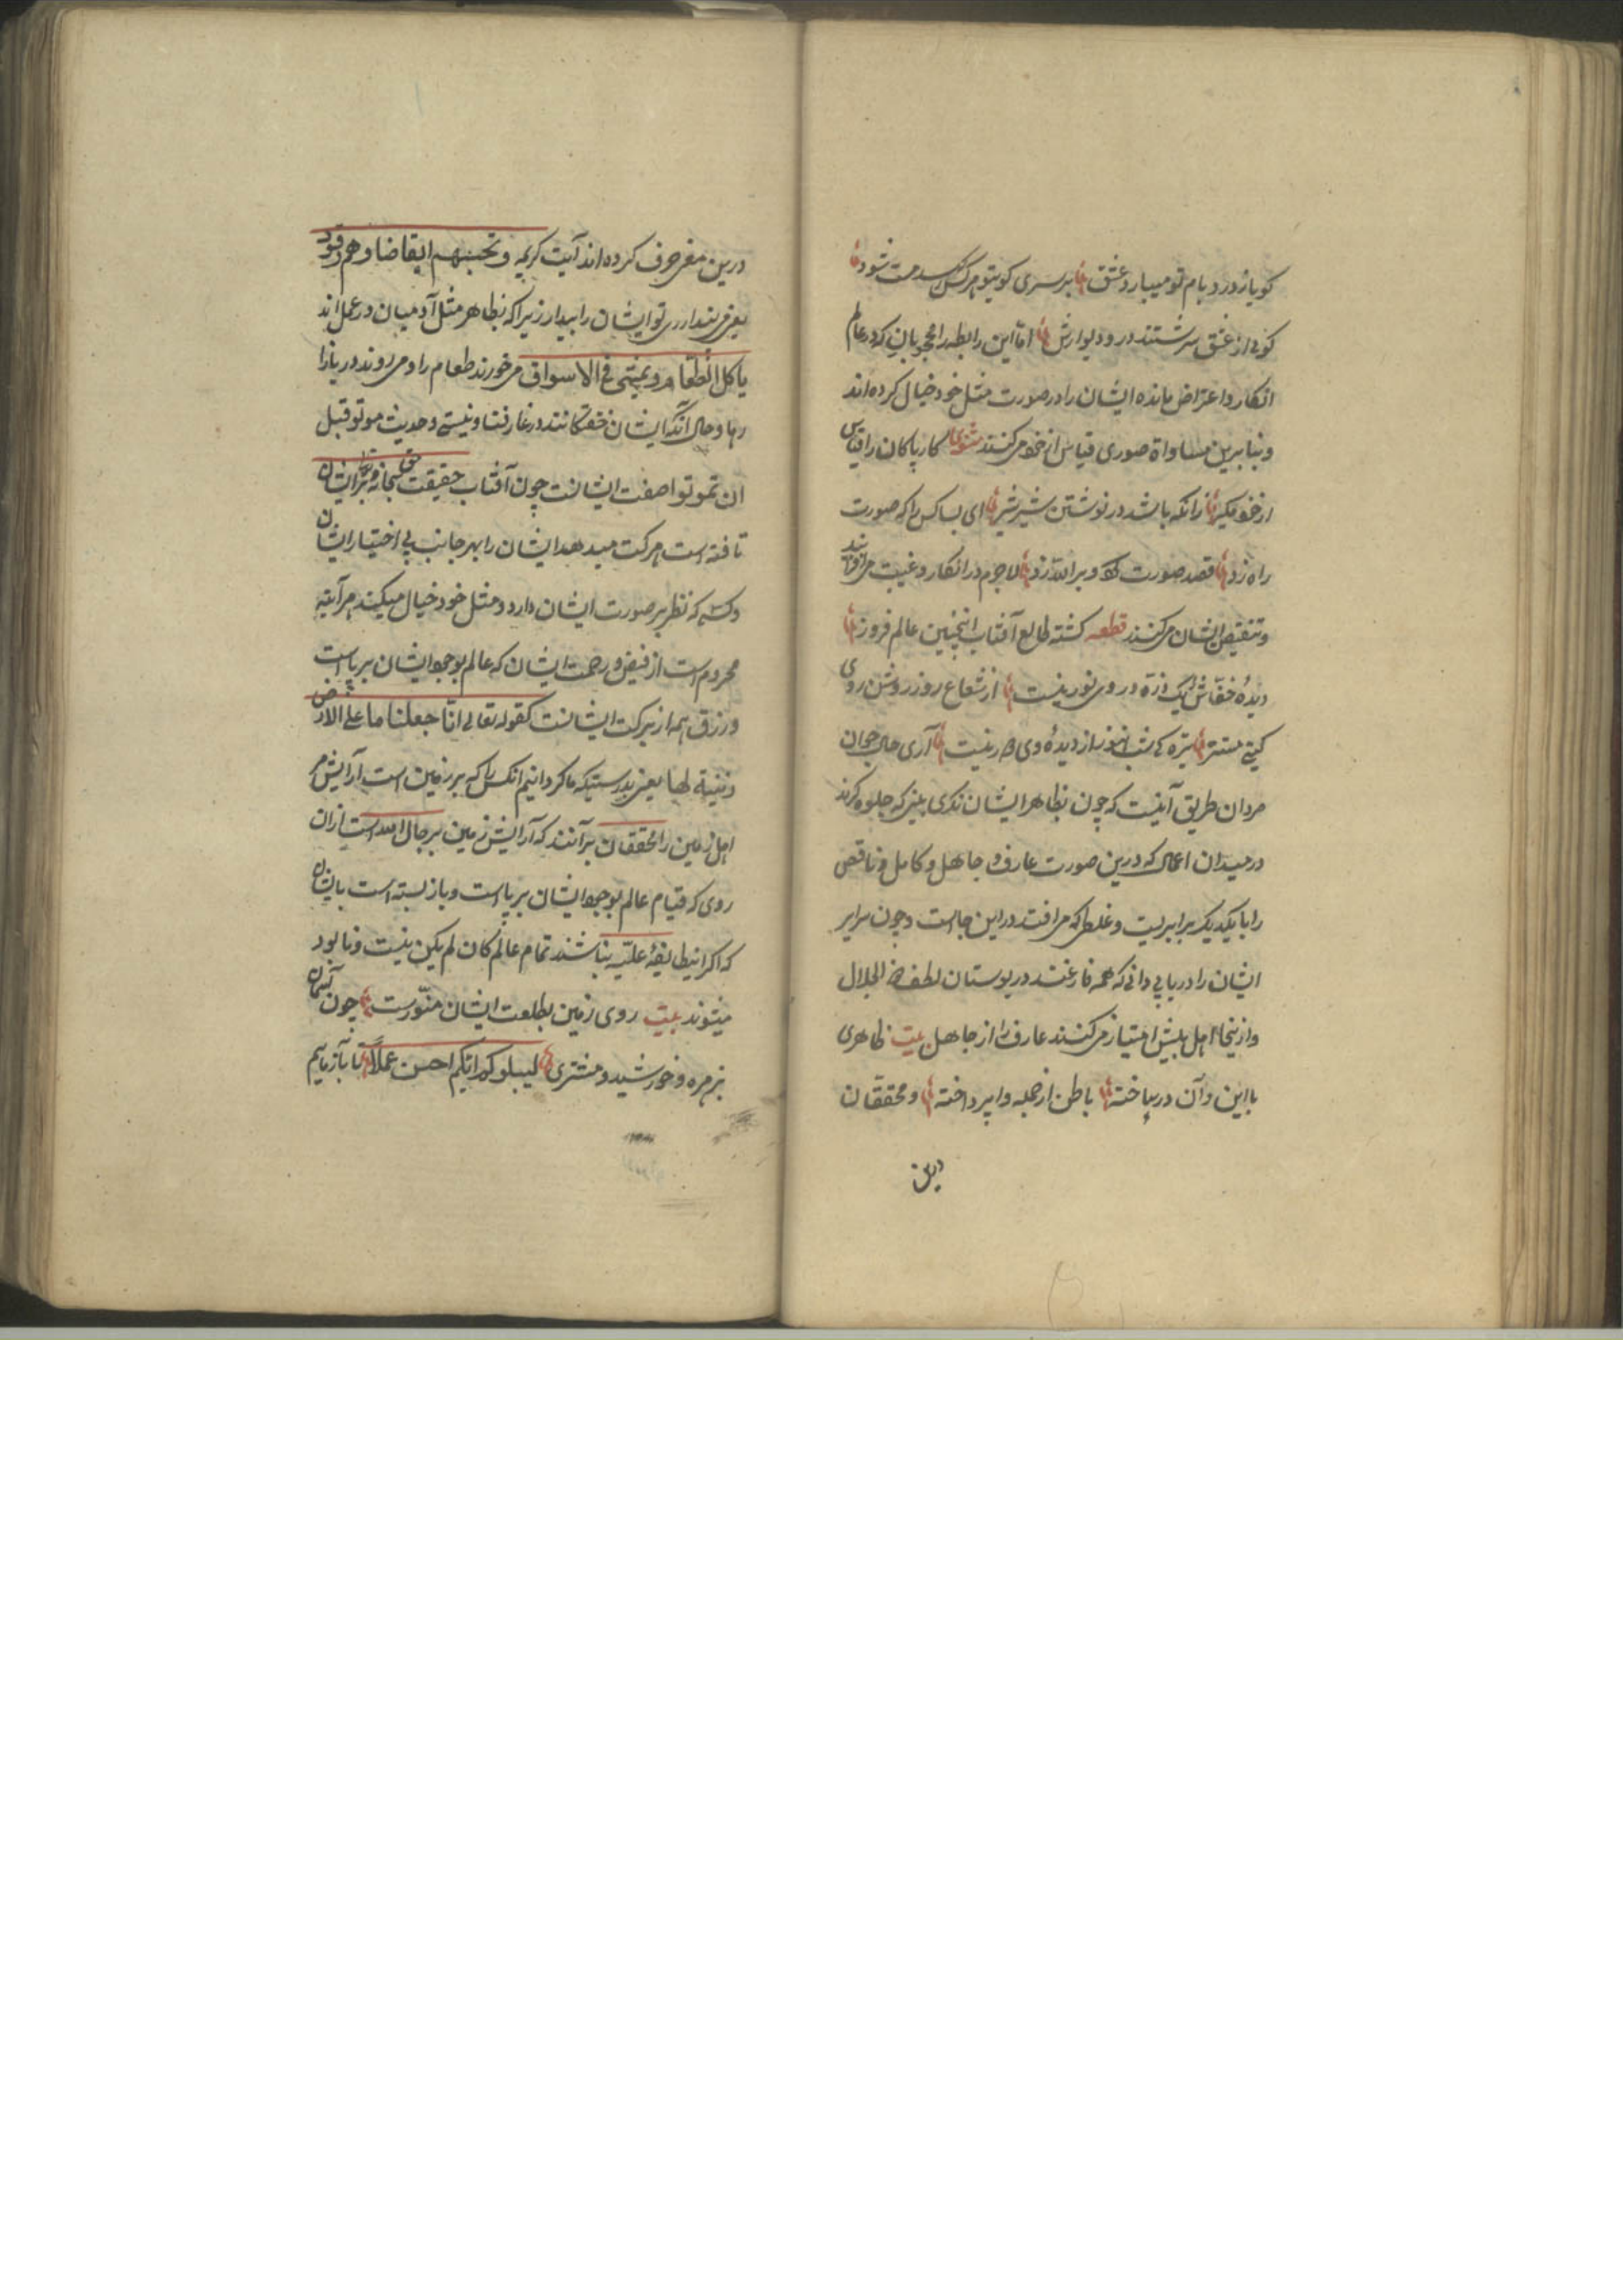 کویا ز در و بام تو میبارد عشق بر سری کویتو هر کس رسد مست شود
کوی از عشق سرشتند در و دیوارش امّا این رابطه را محجوبان که در عالم
انکار و اعتراض مانده ایشان را در صورت مثل خود خیال کرده اند
و بنابرین مساواة صوری قیاس از خود میکنند مثنوی کار پاکان را قیاس
از خود مکیر زانکه باشد در نوشتن شیر شیر ای بسا کس را که صورت
راه زد قصد صورت کرد و بر الله زد لاجرم در انکار و غیبت می افتند
و تنقیص ایشان میکنند قطعه کشته طالع آفتاب اینچنین عالم فروز
دیدهٔ خفّاش را یک ذرّه در وی نور نیست از شعاع روز روشن روی
کیتی مستنیر تیره کی شب هنوز از دیدهٔ وی دور نیست آری حال جوان
مردان طریق آنیست که چون بظاهر ایشان نکری بینی که جلوه کرند
در میدان اعمال که درین صورت عارف و جاهل و کامل و ناقص
را با یکدیکر برابریست و غلطی که می افتد در این جا است و چون سرایر
ایشان را دریابی دانی که همه فارغند در بوستان لطف ذو الجلال
و از ینجا اهل بینش امتیاز میکنند عارف را از جاهل بیت ظاهری
با این و آن در ساخته باطن از جمله وا پرداخته و محققّان
درین
درین معنی حرف کرده اند آیت کریمه و تحسبهم ایقاضا و هم رقود
یعنی می پنداری تو ایشان را بیدار زیرا که بظاهر مثل آدمیان در عمل اند
یاکل الطّعام و یمشی فی الاسواق می خورند طعام را و می روند در بازا
رها و حال آنکه ایشان خفتکانند در غار فنا و نیستی و حدیث موتو قبل
ان تموتوا صفت ایشانست چون آفتاب حقیقت حق سبحانه و تعالی بر ایشان
تافته است حرکت میدهد ایشان را بهر جانب بی اختیار ایشان
و کسی که نظر بر صورت ایشان دارد و مثل خود خیال میکند هر آینه
محروم است از فیض و رحمت ایشان که عالم بوجود ایشان برپاست
و رزق همه از برکت ایشانست کقوله تعالی انّا جعلنا ما علی الارض
زینة لها یعنی بدرستیکه ما کردانیم انکس را که بر زمین است آرایش مر
اهل زمین را محققان برآنند که آرایش زمین برجال الله است ازان
روی که قیام عالم بوجود ایشان برپا است و باز بسته است بایشان
که اکر اینطایفهٔ علیّه نباشند تمام عالم کان لم یکن نیست و نابود
میشوند بیت روی زمین بطلعت ایشان منّورست چون آسمان
بزهره و خورشید و مشتری لیبلوکم ایّکم احسن عملاً تا بازماییم